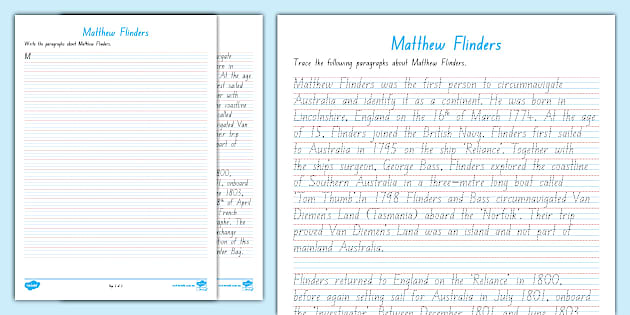 Matthew Flinders
Write the paragraphs about Matthew Flinders.
M
Matthew Flinders
Trace the following paragraphs about Matthew Flinders.
Matthew Flinders was the first person to circumnavigate
Australia and identify it as a continent. He was born in
Lincolnshire, England on the 16th of March 1774. At the age
of 15, Flinders joined the British Navy. Flinders first sailed
to Australia in 1795 on the ship 'Reliance'. Together with
the ship's surgeon, George Bass, Flinders explored the coastline
of Southern Australia in a three-metre long boat called
'Tom Thumb'.In 1798 Flinders and Bass circumnavigated Van
Diemen's Land (Tasmania) aboard the 'Norfolk'. Their trip
proved Van Diemen's Land was an island and not part of
mainland Australia.
Flinders returned to England on the 'Reliance' in 1800,
before again setting sail for Australia in July 1801, onboard
the 'Investigator'. Between December 1801 and June 1803